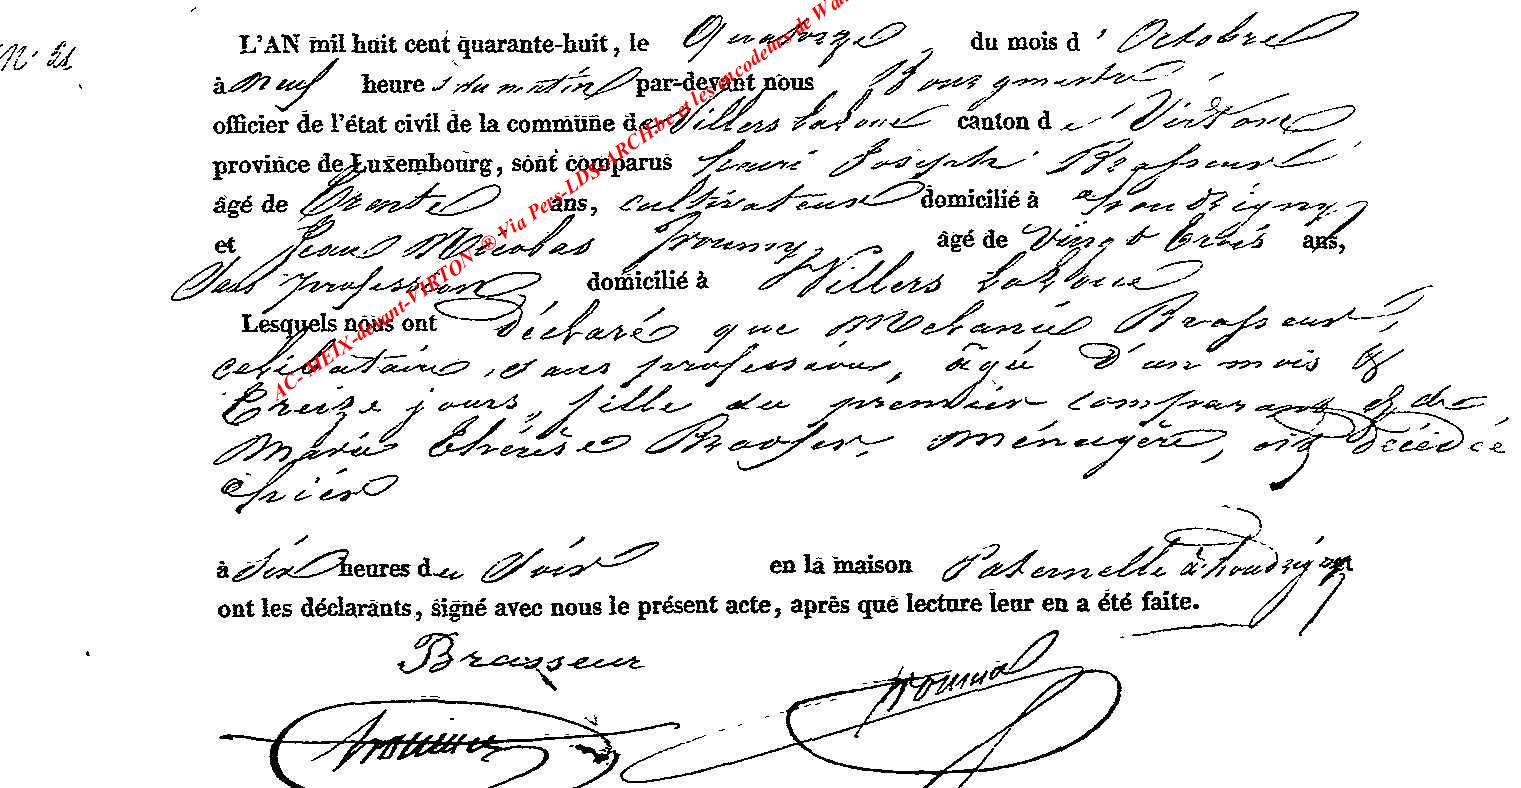 N° 21
L'AN mil huit cent quarante-huit, le Quatorze du mois d'Octobre
à neuf heures du matin par-devant nous Bourgmestre
officier de l'état civil de la commune de Villers Laloue canton de Virton
province de Luxembourg, sont comparus Henri Joseph Brasseur
âgé de trente ans, cultivateur domicilié à houdrigny
et Jean Nicolas âgé de Vingt trois ans,
Sans profession domicilié à Villers Laloue
Lesquels nous ont déclaré que Mélanie Brasseur,
celibataire, sans profession, âgée d'un mois &
treize jours, fille du premier comparant & de
Marie thérèse ménagère, est décédée
hier
à six heures du Soir en la maison Paternelle à houdrigny
ont les déclarants, signé avec nous le présent acte, après que lecture leur en a été faite.
Brasseur
AC- MEIX-devant-VIRTON ® Via Pers-LDS-ARCH.be et les encodeurs de